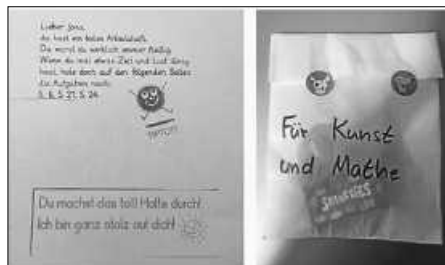 Lieber Jona,
du hast ein tolles Arbeitsheft.
Du warst da wirklich immer fleißig.
Wenn du mal etwas Zeit und Lust übrig
hast, hole doch auf den folgenden Seiten
die Aufgaben nach:
S. 21, S. 24
Du machst das toll! Halte durch!
Ich bin ganz stolz auf dich!
Für Kunst
und Mathe